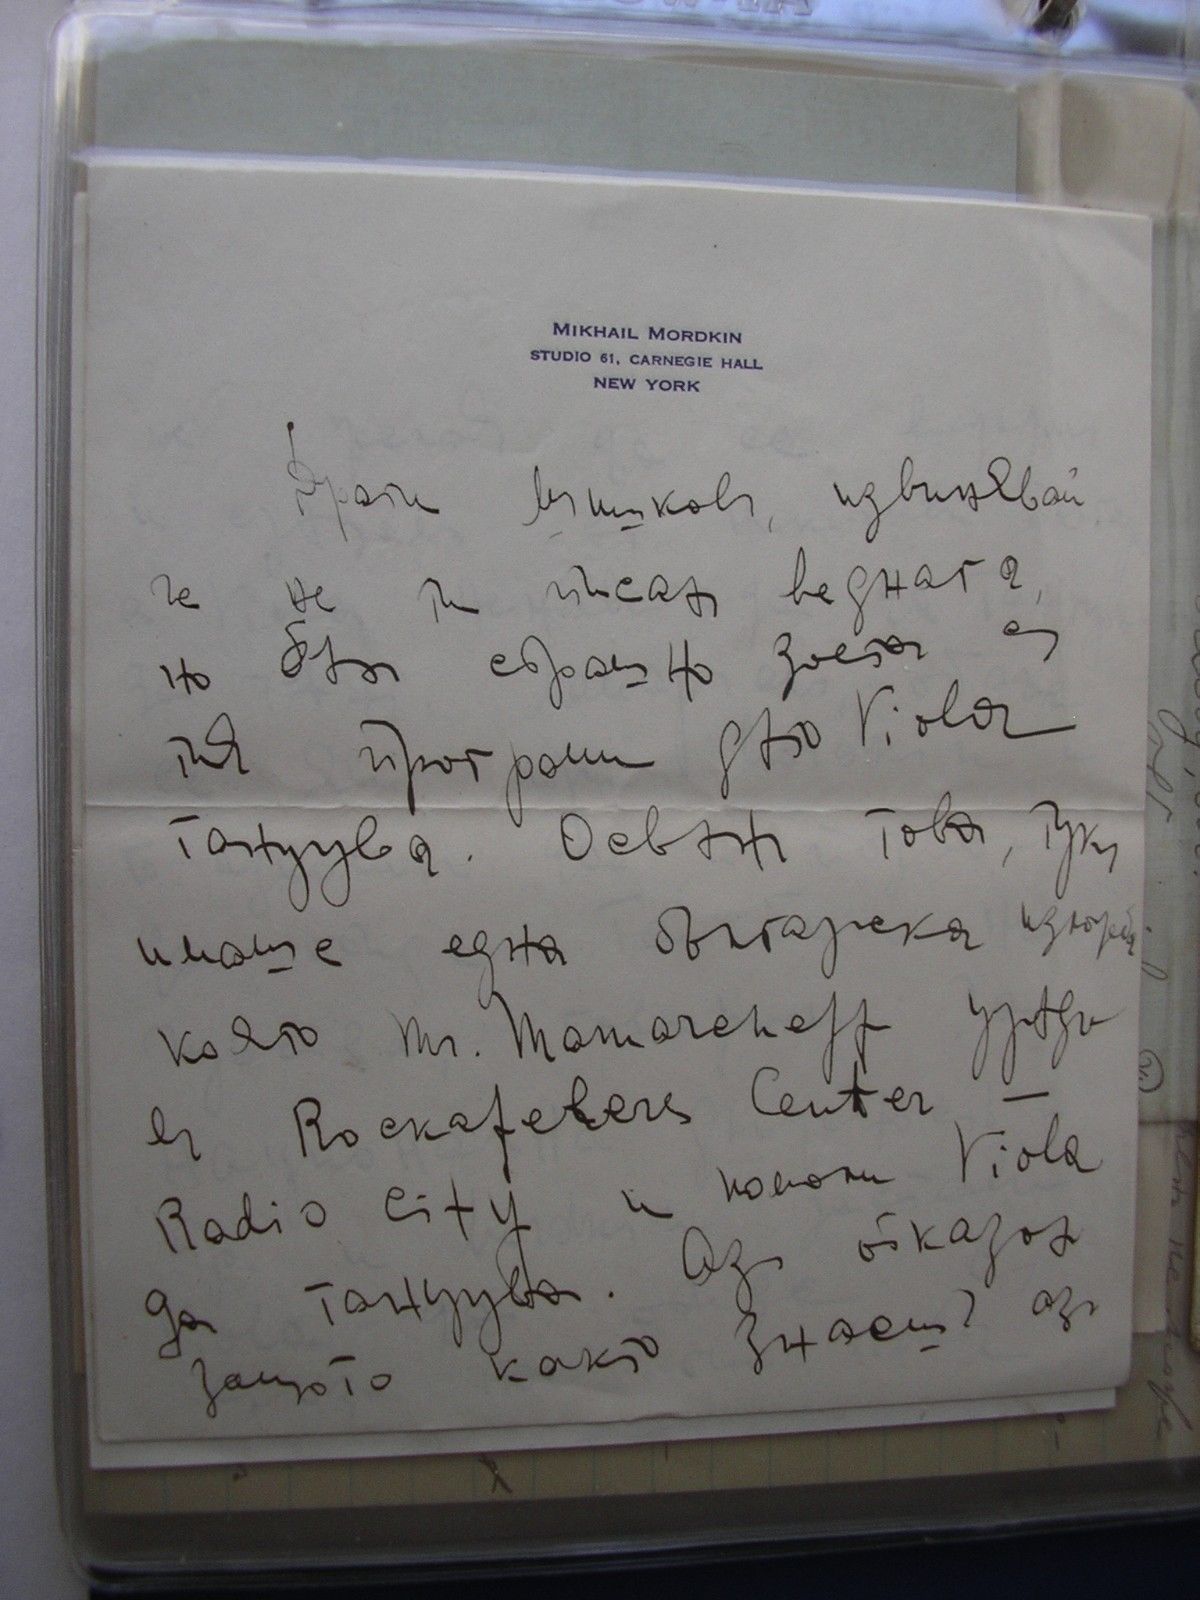 MIKHAIL MORDKIN
STUDIO 61, CARNEGIE HALL
NEW YORK
Драги Вишковъ, извинявай
че не ти писах веднага,
но бях страшно заета съ
тия програми дето Viola
танцува. Освен това, тукъ
имаше една българска изложба
която Mr. Mamarcheff уреди
въ Rockafelers Center —
Radio City и покани Viola
да танцува. Азъ отказах
защото както знаешъ азъ